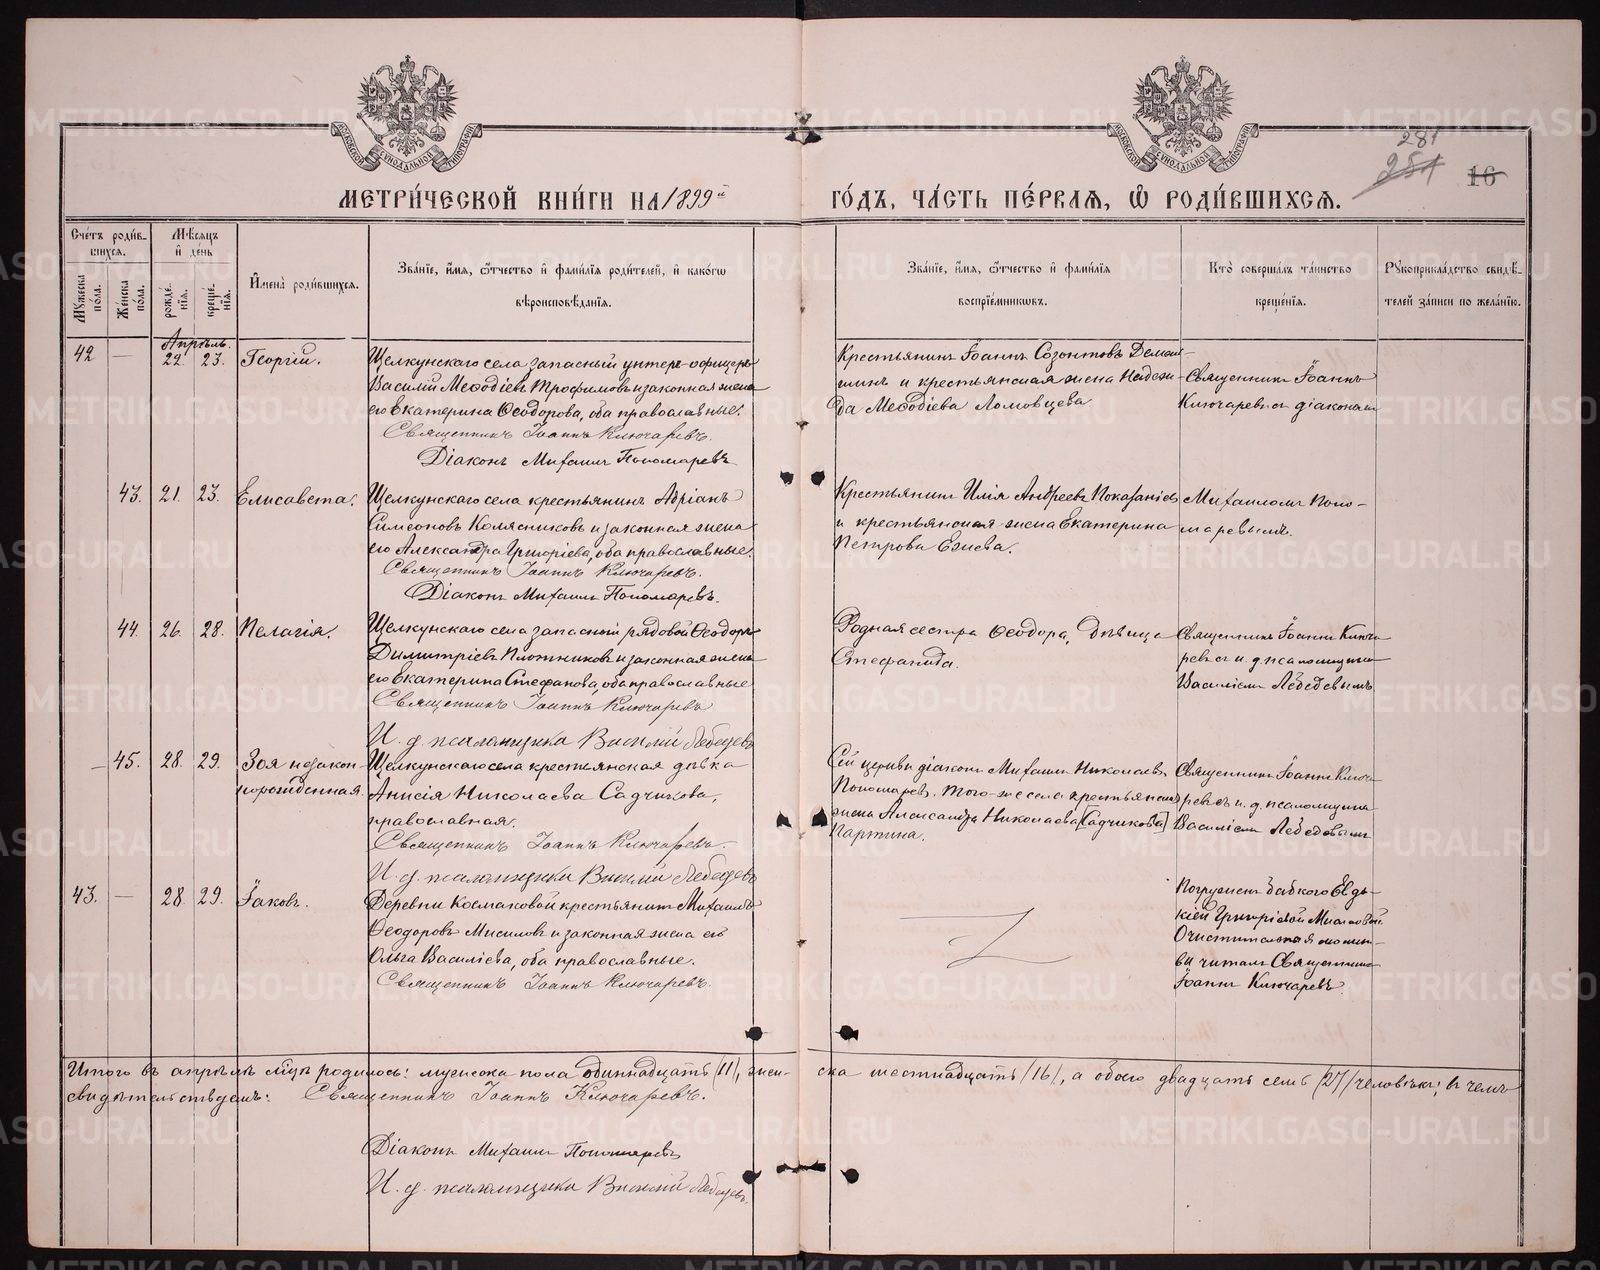 МОСКОВСКОЙ СѴНОДАЛЬНОЙ ТИПОГРАФІИ
МОСКОВСКОЙ СѴНОДАЛЬНОЙ ТИПОГРАФІИ
281
251
16
МЕТРИ́ЧЕСКОЙ КНИ́ГИ НА 1899й ГО́ДЪ, ЧА́СТЬ ПЕ́РВАѦ, Ѿ РОДИ́ВШИХСѦ.
Сче́тъ роди́вшихсѧ.
Мѣ́сѧцъ и҆ де́нь
Мꙋ́жеска по́ла.
Же́нска по́ла.
рожде́нїѧ.
креще́нїѧ.
И҆мена̀ роди́вшихсѧ.
Зва́нїе, и҆́мѧ, ѻ҆́тчество и҆ фами́лїѧ роди́телей, и҆ како́гѡ
вѣроисповѣ́данїѧ.
Зва́нїе, и҆́мѧ, ѻ҆́тчество и҆ фами́лїѧ
воспрїе́мникѡвъ.
Кто̀ соверша́лъ та́инство
креще́нїѧ.
Рꙋкоприкла́дство свидѣ́-
телей за́писи по жела́нїю.
Апрѣль.
42 — 22. 23. Георгій.
Щелкунскаго села запасный унтеръ-офицеръ
Василій Меѳодіевъ Трофимовъ и законная жена
его Екатерина Ѳеодорова, оба православные.
Священникъ Іоаннъ Ключаревъ.
Діаконъ Михаилъ Пономаревъ
Крестьянинъ Іоаннъ Созонтовъ
и крестьянская жена Надеж-
да Меѳодіева Ломовцева
Священникъ Іоаннъ
Ключаревъ съ діакономъ
43. 21. 23. Елисавета.
Щелкунскаго села крестьянинъ Адріанъ
Симеоновъ Колясниковъ и законная жена
его Александра Григоріева, оба православные.
Священникъ Іоаннъ Ключаревъ.
Діаконъ Михаилъ Пономаревъ.
Крестьянинъ Илія Андреевъ
и крестьянская жена Екатерина
Петрова
Михаиломъ Поно-
маревымъ.
44. 26. 28. Пелагія.
Щелкунскаго села запасной рядовой Ѳеодоръ
Димитріевъ Плотниковъ и законная жена
его Екатерина Стефанова, оба православные
Священникъ Іоаннъ Ключаревъ
И. д. псаломщика Василій Лебедевъ
Родная сестра Ѳеодора, дѣвица
Стефанида.
Священникъ Іоаннъ Ключа-
ревъ съ и. д. псаломщика
Василіемъ Лебедевымъ
— 45. 28. 29. Зоя незакон-
норожденная.
Щелкунскаго села крестьянская дѣвка
Анисія Николаева Садчикова,
православная.
Священникъ Іоаннъ Ключаревъ.
И. д. псаломщика Василій Лебедевъ
Сей церкви діаконъ Михаилъ Николаевъ
Пономаревъ. Того-же села крестьянская
жена Александра Николаева [Садчикова]
Партина.
Священникъ Іоаннъ Ключа-
ревъ съ и. д. псаломщика
Василіемъ Лебедевымъ
43. — 28. 29. Іаковъ.
Деревни Космаковой крестьянинъ Михаилъ
Ѳеодоровъ Мисиловъ и законная жена его
Ольга Василіева, оба православные.
Священникъ Іоаннъ Ключаревъ.
Погруженъ бабкою Евдо-
кіей Григоріевой
Очистительныя молит-
вы читалъ Священникъ
Іоаннъ Ключаревъ.
Итого въ апрѣлѣ мцѣ родилось: мужеска пола одиннадцать /11/, жен-
ска шестнадцать /16/, а обоего двадцать семь /27/ человѣкъ; въ чемъ
свидѣтельствуемъ: Священникъ Іоаннъ Ключаревъ.
Діаконъ Михаилъ Пономаревъ
И. д. псаломщика Василій Лебедевъ.
METRIKI.GASO-URAL.RU